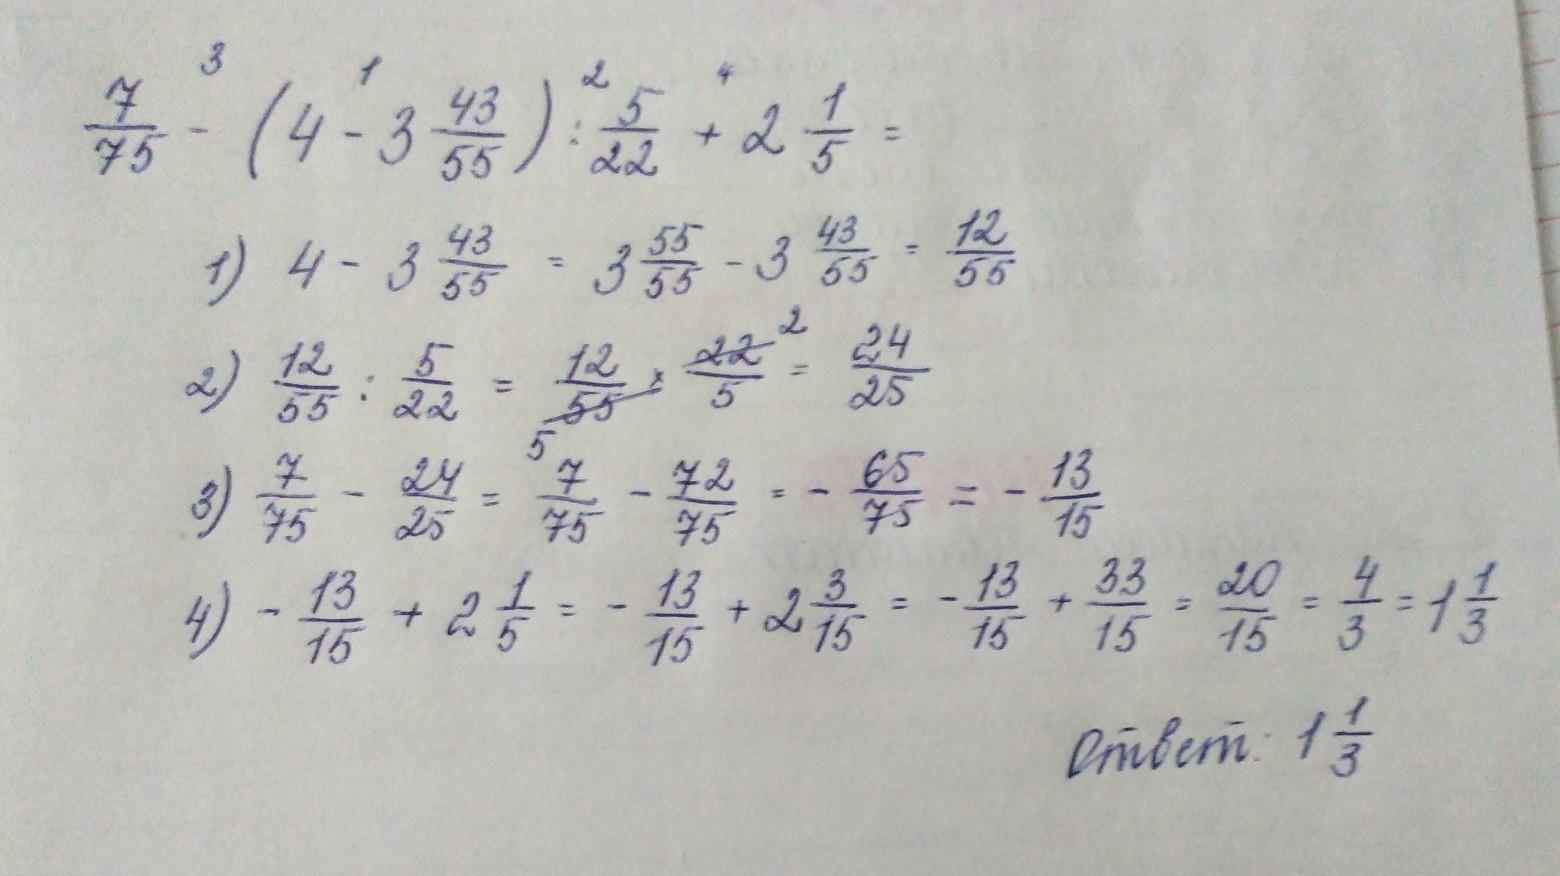 7/75 -³ (4 -¹ 3 43/55) :² 5/22 +⁴ 2 1/5 =
1) 4 - 3 43/55 = 3 55/55 - 3 43/55 = 12/55
2) 12/55 : 5/22 = 12/55 5 × 22/5 2 = 24/25
3) 7/75 - 24/25 = 7/75 - 72/75 = - 65/75 = - 13/15
4) - 13/15 + 2 1/5 = - 13/15 + 2 3/15 = - 13/15 + 33/15 = 20/15 = 4/3 = 1 1/3
Ответ: 1 1/3